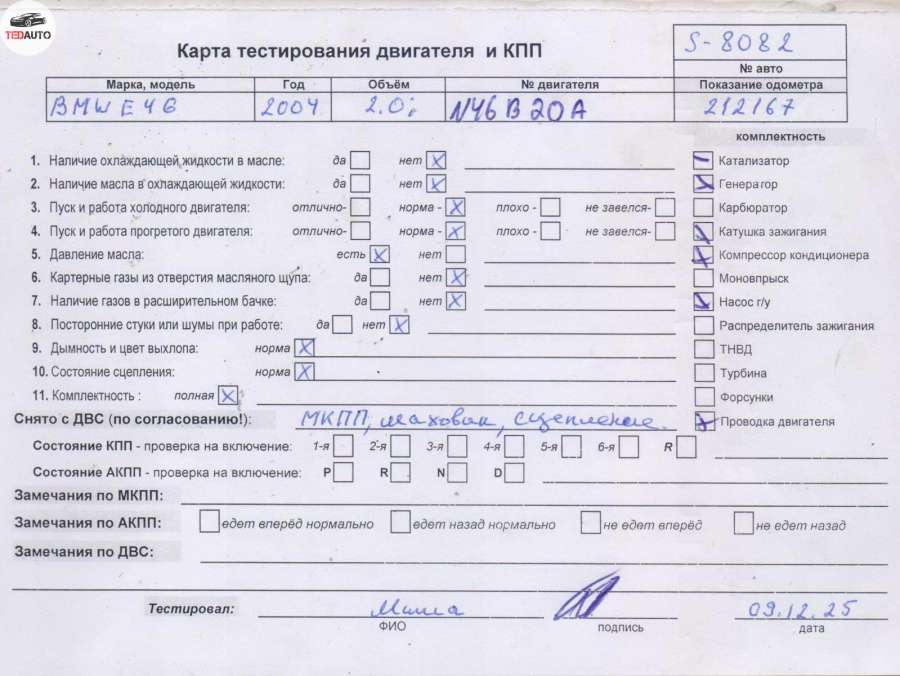 TEDAUTO
Карта тестирования двигателя и КПП
S-8082
№ авто
Марка, модель Год Объём № двигателя Показание одометра
BMW E46 2004 2.0i N46B20A 212167
комплектность
1. Наличие охлаждающей жидкости в масле: да нет X
Катализатор
2. Наличие масла в охлаждающей жидкости: да нет X
Генератор
3. Пуск и работа холодного двигателя: отлично- норма - X плохо - не завелся-
Карбюратор
4. Пуск и работа прогретого двигателя: отлично- норма - X плохо - не завелся-
Катушка зажигания
5. Давление масла: есть X нет
Компрессор кондиционера
6. Картерные газы из отверстия масляного щупа: да нет X
Моновпрыск
7. Наличие газов в расширительном бачке: да нет X
Насос г/у
8. Посторонние стуки или шумы при работе: да нет X
Распределитель зажигания
9. Дымность и цвет выхлопа: норма X
ТНВД
10. Состояние сцепления: норма X
Турбина
11. Комплектность : полная X
Форсунки
Снято с ДВС (по согласованию!): МКПП, маховик, сцепление.
Проводка двигателя
Состояние КПП - проверка на включение: 1-я 2-я 3-я 4-я 5-я 6-я R
Состояние АКПП - проверка на включение: P R N D
Замечания по МКПП:
Замечания по АКПП: едет вперёд нормально едет назад нормально не едет вперёд не едет назад
Замечания по ДВС:
Тестировал: Миша 09.12.25
ФИО подпись дата